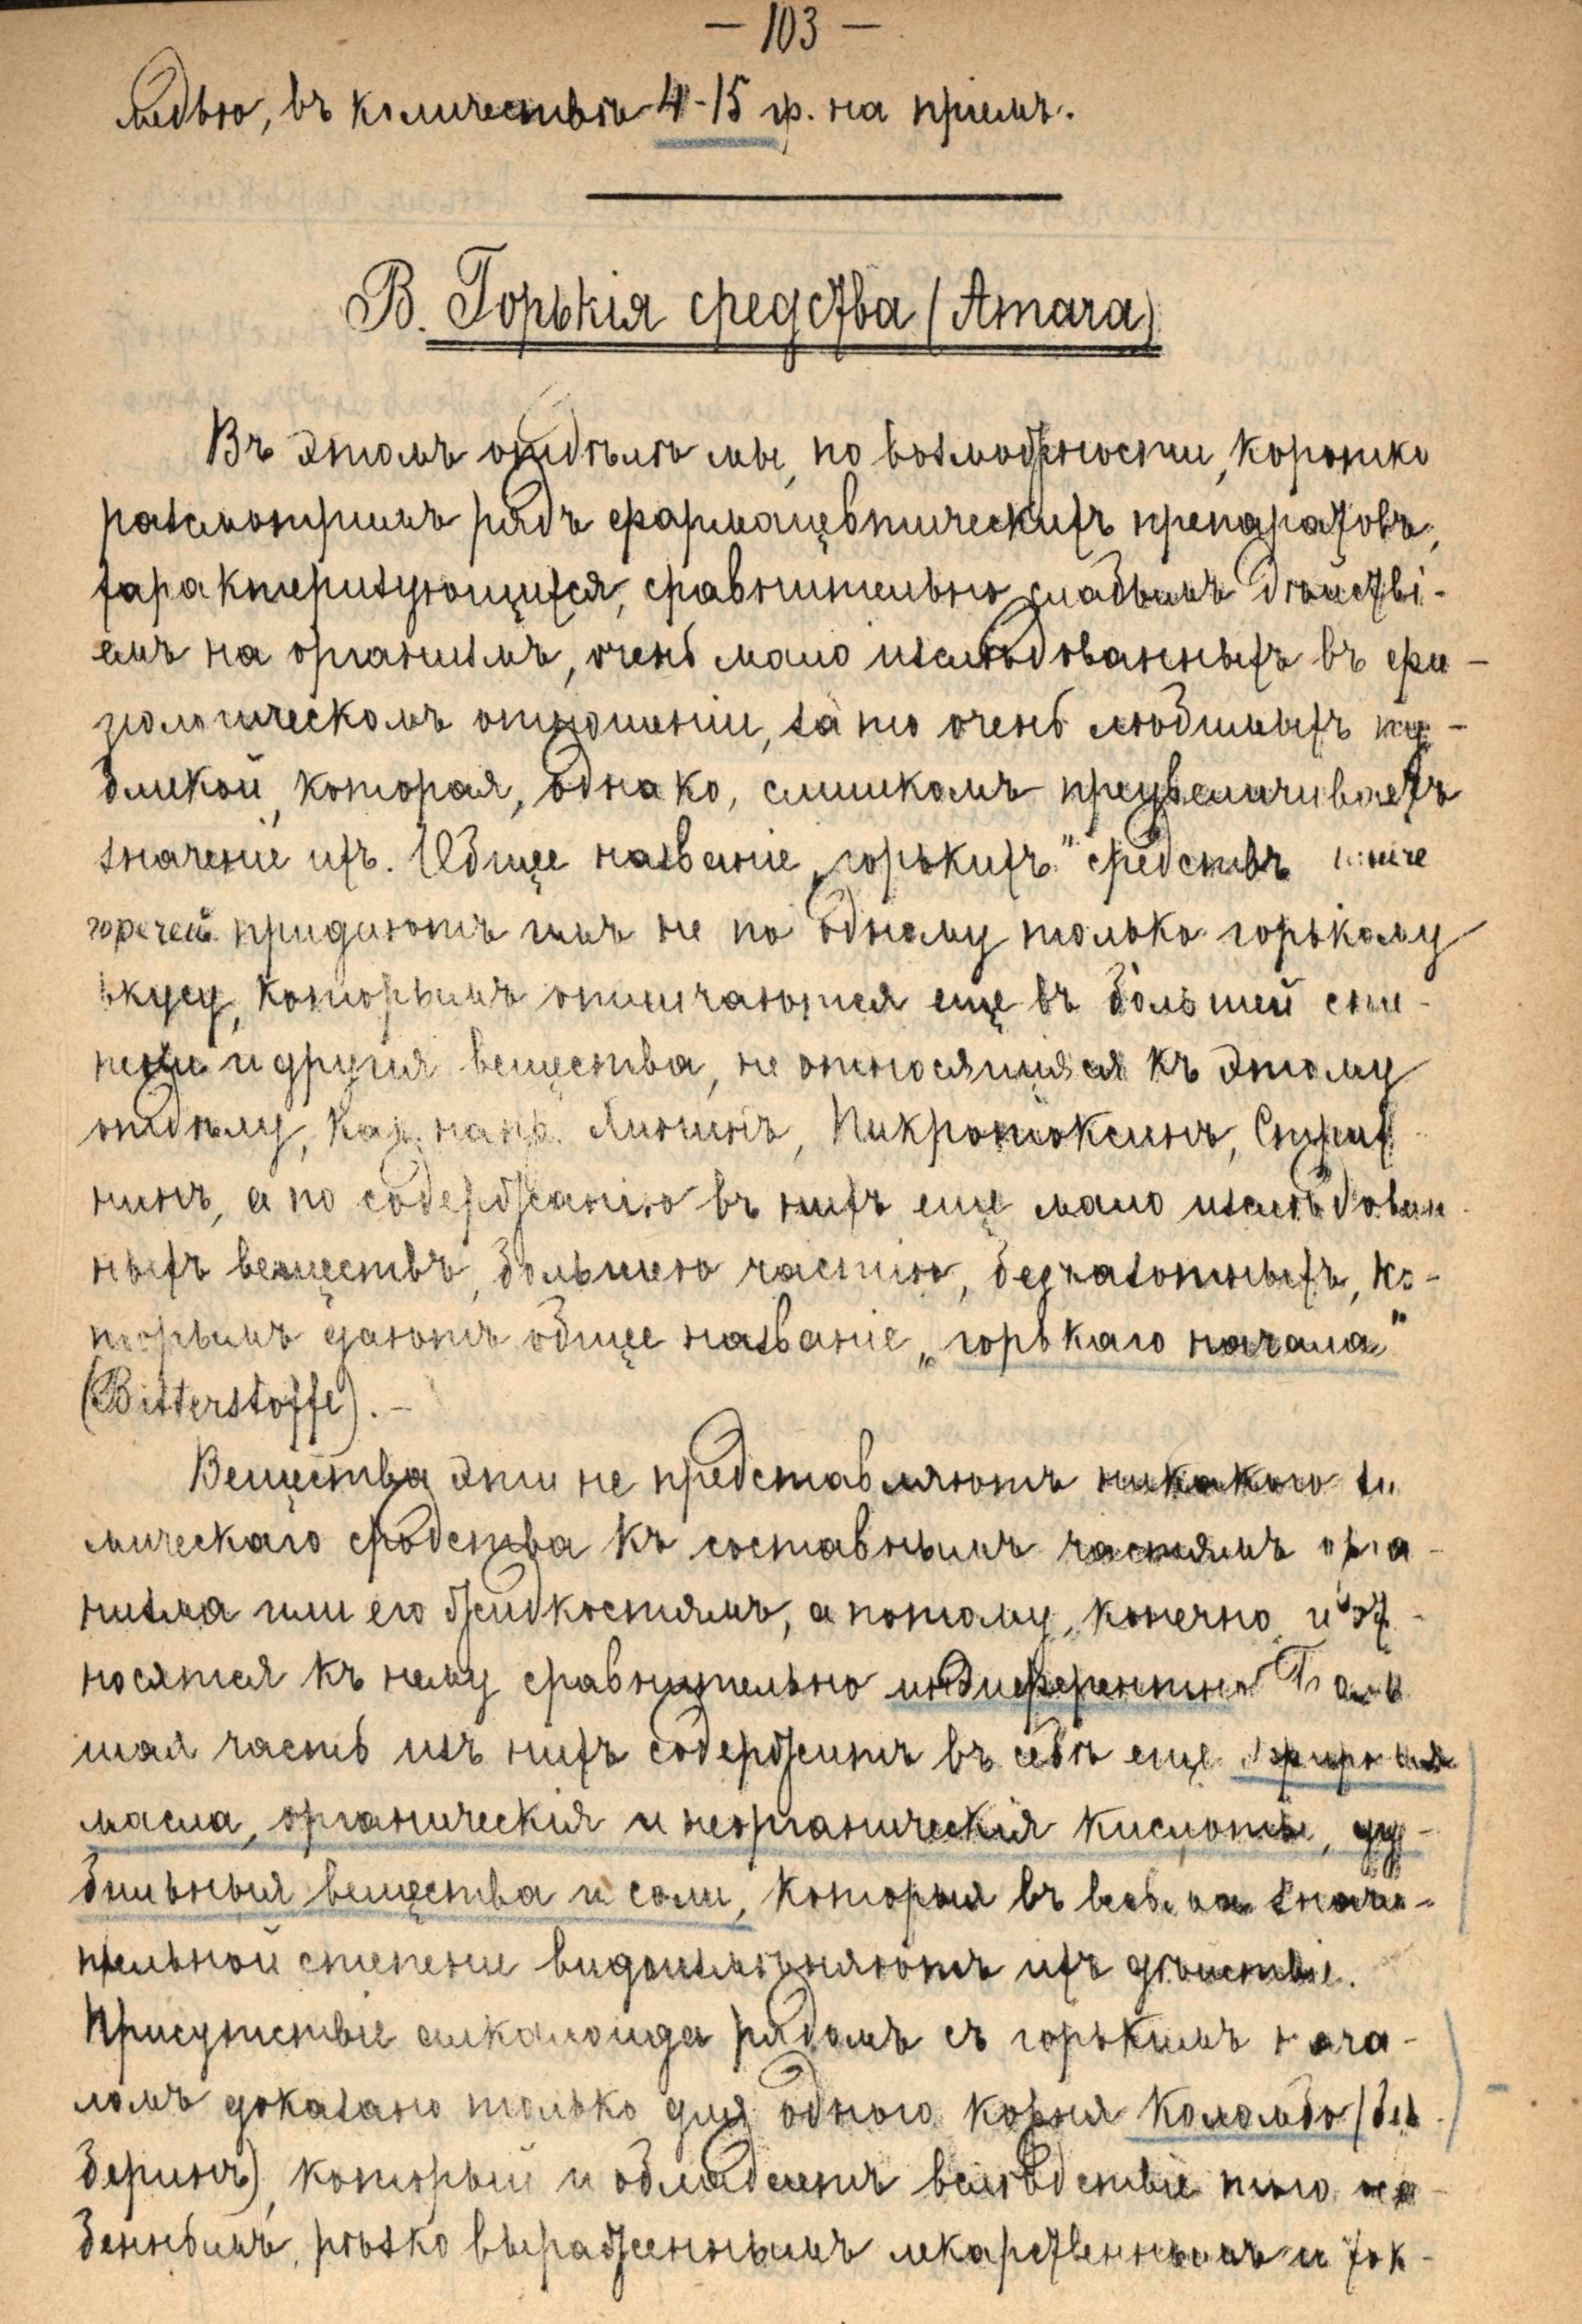 — 103 —
медью, въ количествѣ 4-15 гр. на пріемъ.
В. Горькія средства (Amara)
Въ этомъ отдѣлѣ мы, по возможности, коротко
разсмотримъ рядъ фармацевтическихъ препаратовъ,
характеризующихся, сравнительно слабымъ дѣйстві-
емъ на организмъ, очень мало изслѣдованныхъ въ фи-
зіологическомъ отношеніи, за то очень любимыхъ пу-
бликой, которая, однако, слишкомъ преувеличиваетъ
значеніе ихъ. Общее названіе „горькихъ" средствъ иначе
горечей придаютъ имъ не по одному только горькому
вкусу, которымъ отличаются еще въ большей сте-
пени и другія вещества, не относящіяся къ этому
отдѣлу, как напр. Хининъ, Пикротоксинъ, Стрих-
нинъ, а по содержанію въ нихъ еще мало изслѣдован-
ныхъ веществъ, большею частію, безъазотныхъ, ко-
торымъ даютъ общее названіе „горькаго начала"
(Bitterstoffe). —
Вещества эти не представляютъ никакого хи
мическаго сродства къ составнымъ частямъ орга-
низма или его жидкостямъ, а потому, конечно, и от-
носятся къ нему сравнительно индиферентно. Боль
шая часть изъ нихъ содержитъ въ себѣ еще эфирныя
масла, органическія и неорганическія кислоты, ду-
бильныя вещества и соли, которыя въ весьма значи-
тельной степени видоизмѣняютъ ихъ дѣйствіе.
Присутствіе алкалоида рядомъ съ горькимъ нача-
ломъ доказано только для одного корня Коломбо (бер-
беринъ), который и обладаетъ вслѣдствіе того осо-
беннымъ, рѣзко выраженнымъ лекарственнымъ и ток-